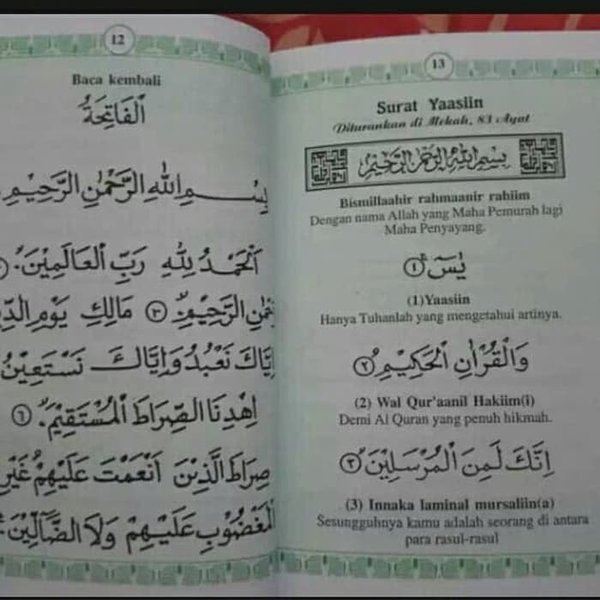 12
Baca kembali
اَلْفَاتِحَةُ
بِسْمِ اللهِ الرَّحْمٰنِ الرَّحِيْمِ
اَلْحَمْدُ لِلهِ رَبِّ الْعَالَمِيْنَ
الرَّحِيْمِ ۝٣ مَالِكِ يَوْمِ
اِيَّاكَ نَعْبُدُ وَاِيَّاكَ نَسْتَعِيْنُ
اِهْدِنَا الصِّرَاطَ الْمُسْتَقِيْمَ ۝٦
صِرَاطَ الَّذِيْنَ اَنْعَمْتَ عَلَيْهِمْ غَيْرِ
الْمَغْضُوْبِ عَلَيْهِمْ وَلَا الضَّالِّيْنَ
13
Surat Yaasiin
Diturunkan di Mekah, 83 Ayat
بِسْمِ اللهِ الرَّحْمٰنِ الرَّحِيْمِ
Bismillaahir rahmaanir rahiim
Dengan nama Allah yang Maha Pemurah lagi
Maha Penyayang.
يٰسۤ ۝١
(1)Yaasiin
Hanya Tuhanlah yang mengetahui artinya.
وَالْقُرْاٰنِ الْحَكِيْمِ ۝٢
(2) Wal Qur'aanil Hakiim(i)
Demi Al Quran yang penuh hikmah.
اِنَّكَ لَمِنَ الْمُرْسَلِيْنَ ۝٣
(3) Innaka laminal mursaliin(a)
Sesungguhnya kamu adalah seorang di antara
para rasul-rasul